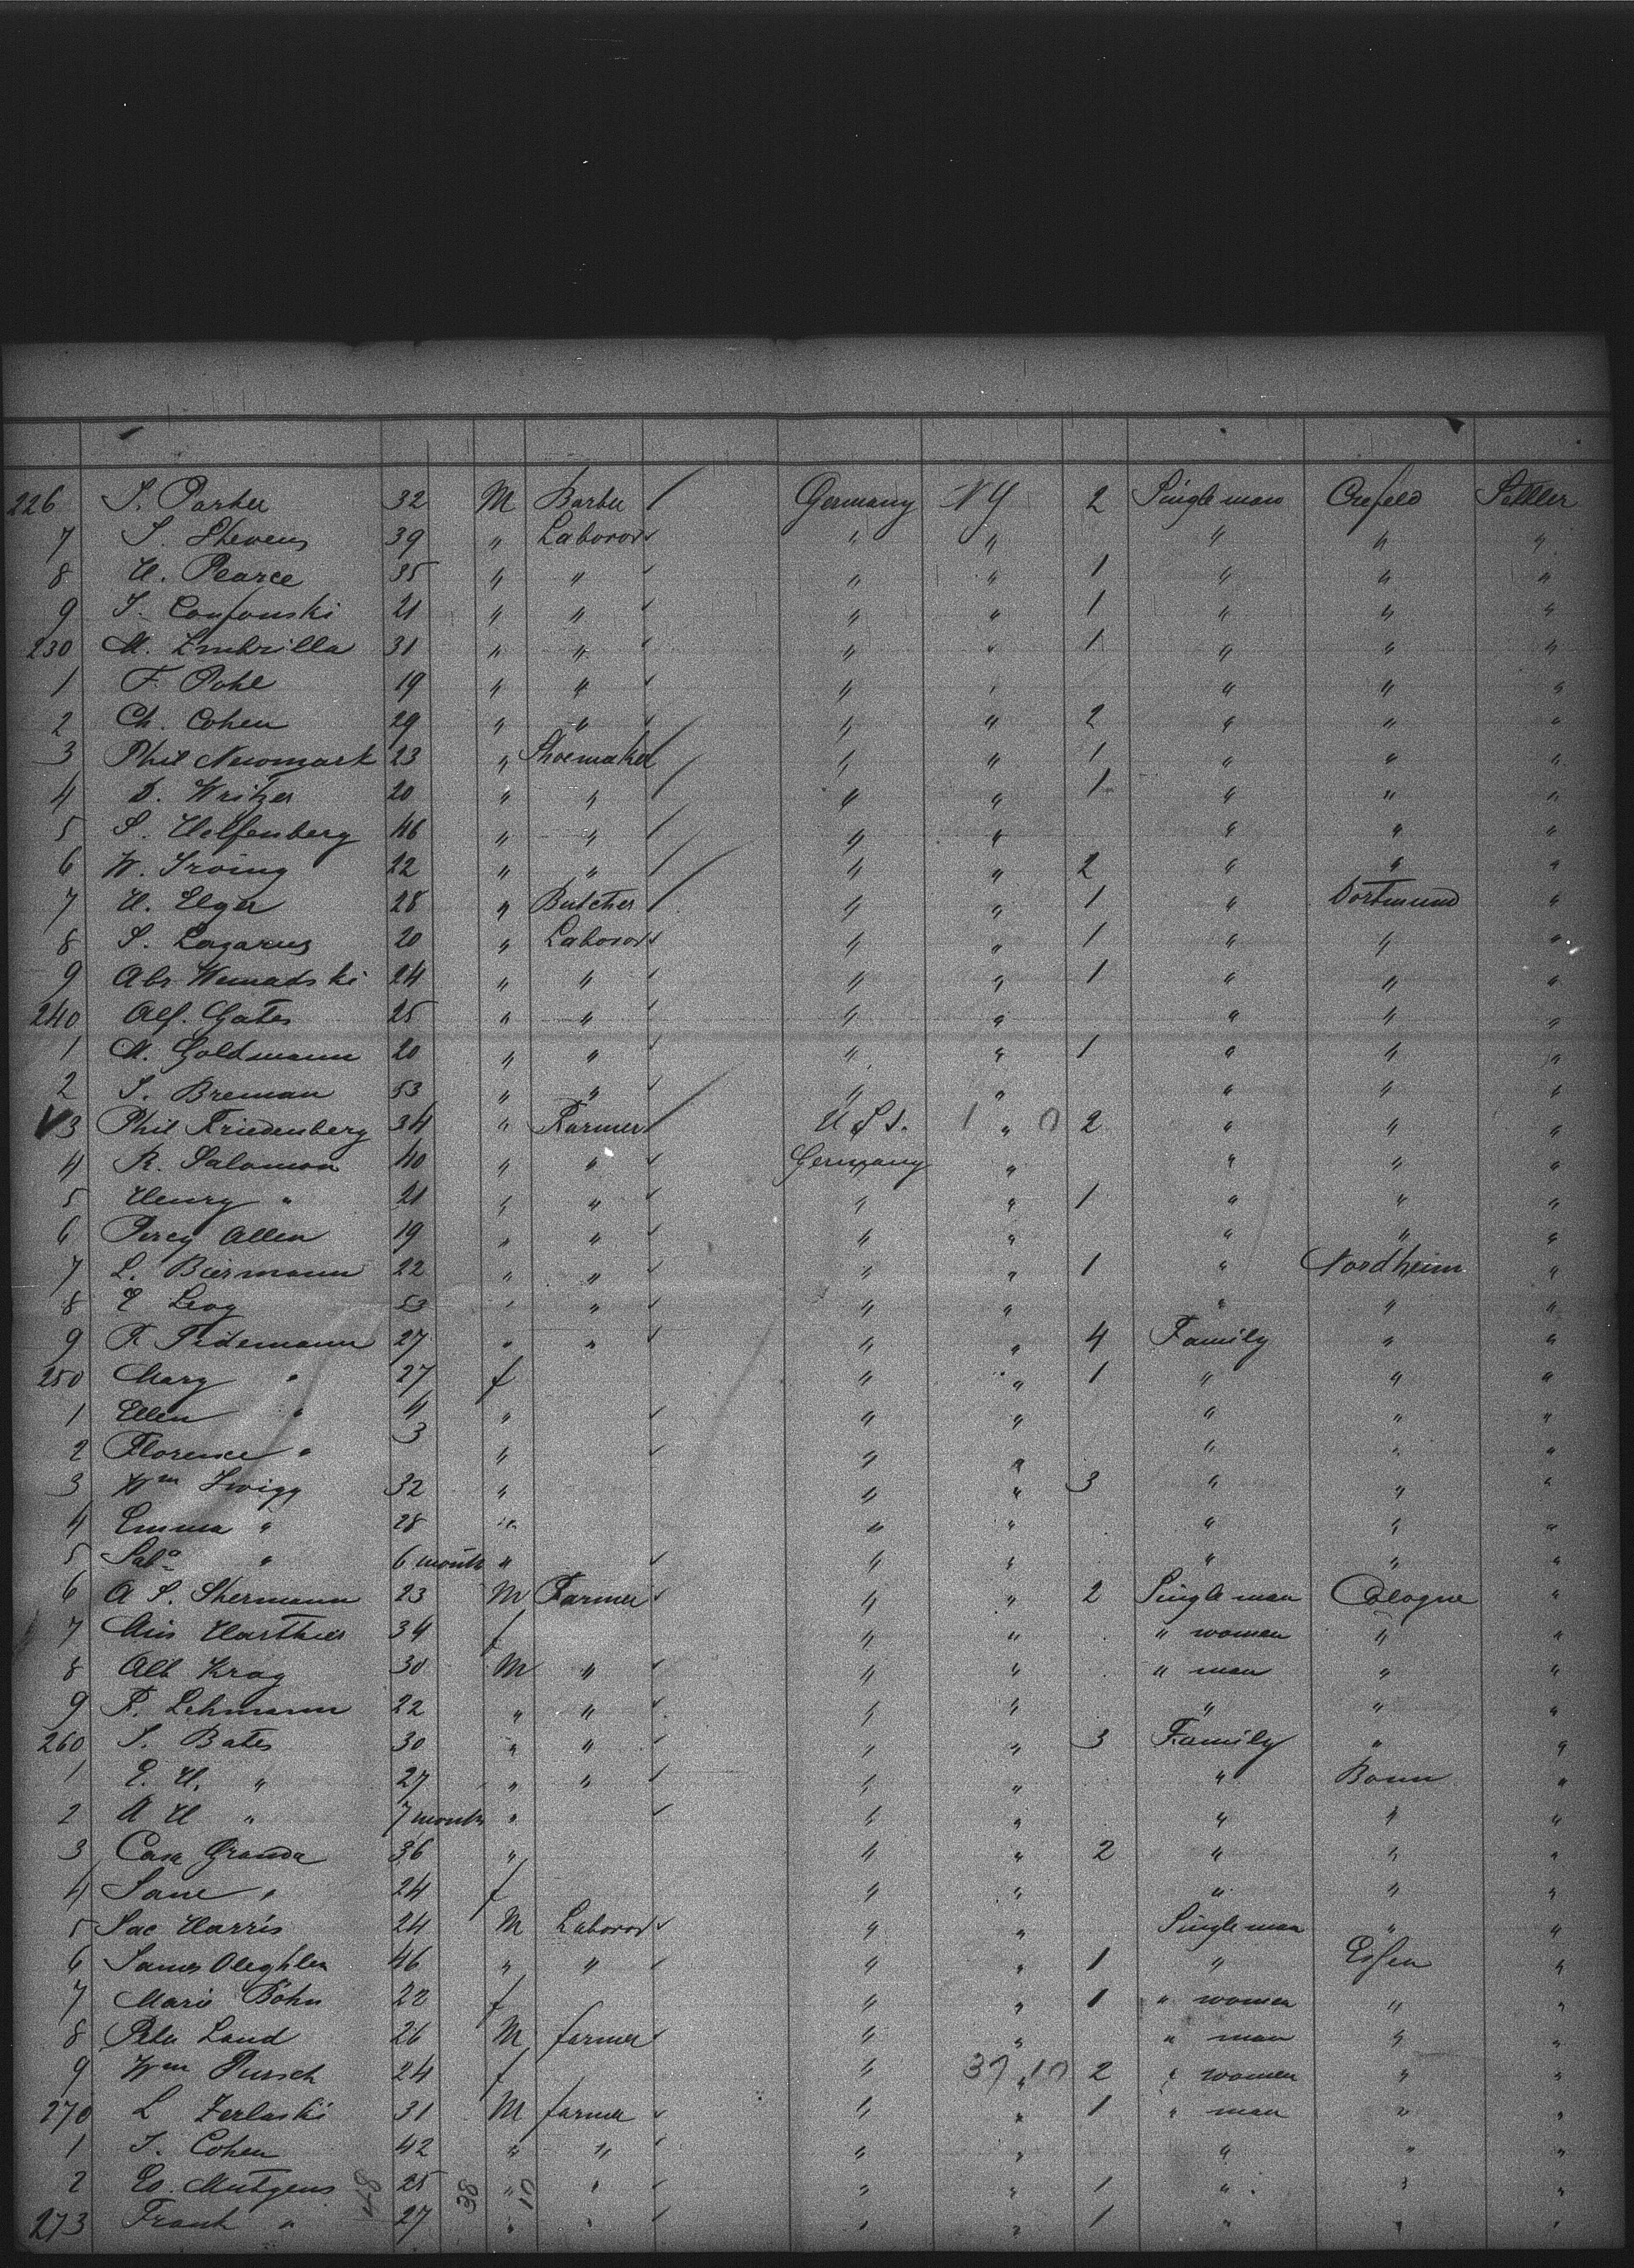 226 S. Parker 32 M Barber / Germany NY 2 Single man Crefeld Settler
7 S. Stevens 39 " Laboror " " " " "
8 H. Pearce 35 " " " " 1 " " "
9 21 " " " " 1 " " "
230 M. 31 " " " " 1 " " "
1 F. Pohl 19 " " " " " " "
2 Ch. Cohen 29 " " " " 2 " " "
3 Phil Newmark 23 " Shoemaker / " " 1 " " "
4 20 " " / " " 1 " " "
5 S. Helfenberg 46 " " / " " " " "
6 W. Irving 22 " " / " " 2 " " "
7 H. Elger 28 " Butcher / " " 1 " Dortmund "
8 S. Lazarus 20 " Laboror " " 1 " " "
9 Abr 24 " " " " 1 " " "
240 Alf. Gates 25 " " " " " " "
1 M. Goldmann 20 " " " " 1 " " "
2 S. Breman 53 " " " " " " "
3 Phil Friedenberg 34 " Farmer / U S S. 1 " 0 2 " " "
4 R. Salomon 40 " " Germany " " " "
5 Henry " 21 " " " " 1 " " "
6 Percy Allen 19 " " " " " " "
7 L. Biermann 22 " " " " 1 " Nordheim "
8 E Levy 53 " " " " " " "
9 F. Tidemann 27 " " " " 4 Family " "
250 Mary " 27 f " " 1 " " "
1 Ellen " 4 " " " " " "
2 Florence " 3 " " " " " "
3 Wm Zwigg 32 " " " 3 " " "
4 Emma " 28 " " " " " "
5 " 6 month " " " " " "
6 A S. Shermann 23 M Farmer " " 2 Single man Cologne "
7 Mis 34 f " " " women " "
8 Alb Krag 30 M " " " " man " "
9 F. Lehmann 22 " " " " " " "
260 S. Bates 30 " " " " 3 Family " "
1 E. H. " 27 " " " " " Bonn "
2 A H " 7 month " " " " " "
3 Casa Granda 36 " " " 2 " " "
4 Jane " 24 f " " " " "
5 Jac Harris 24 M Laboror " " Single man " "
6 James 46 " " " " 1 " Essen "
7 Marie Böhn 22 f " " 1 " women " "
8 Land 26 M farmer " " " man " "
9 Wm Pusch 24 f " 37 " 10 2 " women " "
270 L Zerlaski 31 M farmer " " 1 " man " "
1 J. Cohen 42 " " " " " " "
2 Ed. Mutgens 25 " " " " 1 " " "
273 Frank " 27 " " " " 1 " " "
48 38 10